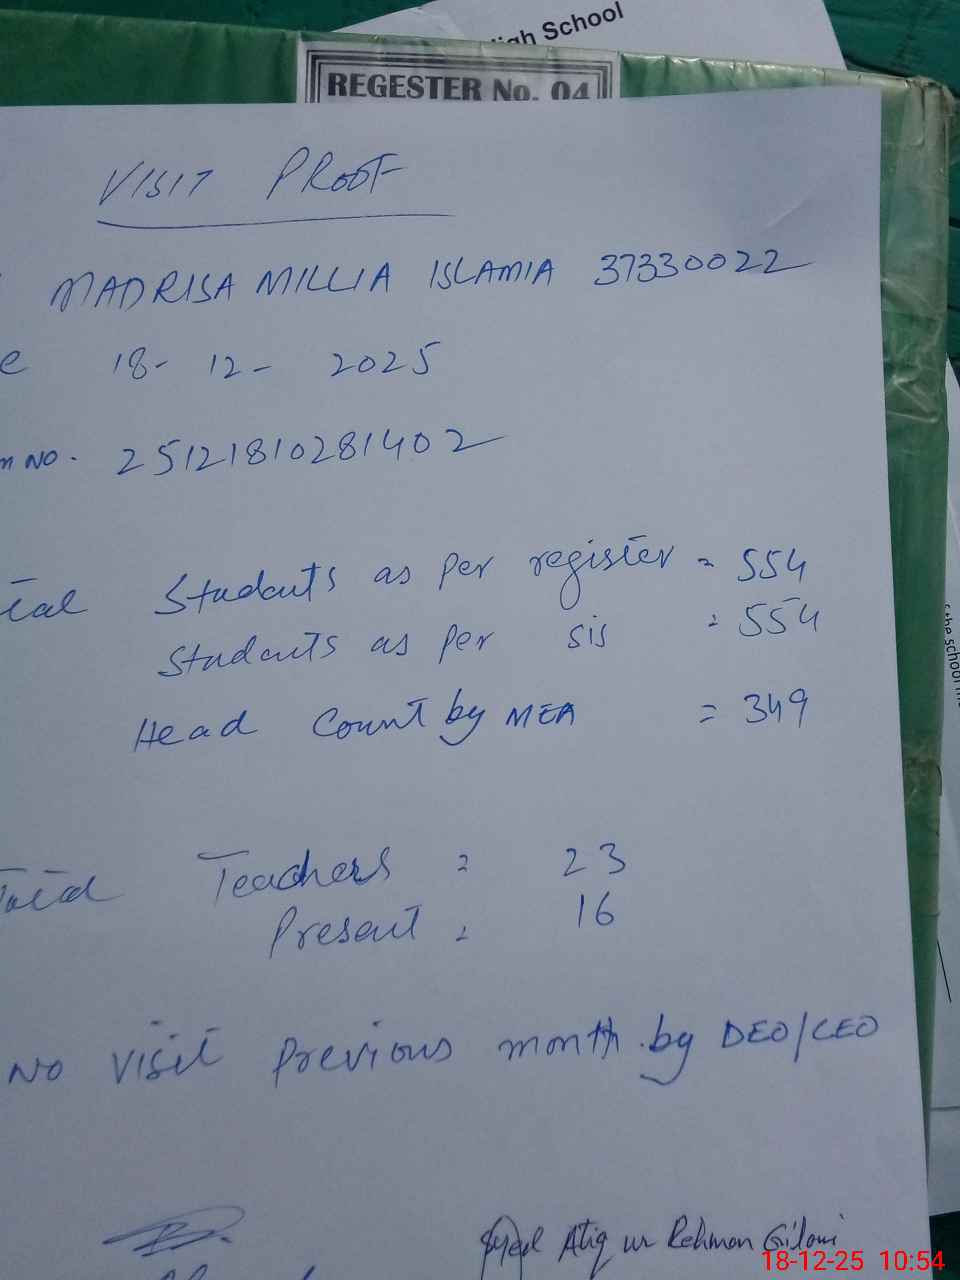 High School
REGESTER No. 04
VISIT PROOF
MADRISA MILLIA ISLAMIA 37330022
e 18-12-2025
m NO. 25121810281402
tal Students as per register = 554
Students as per sis = 554
Head Count by MEA = 349
Total Teachers = 23
Present = 16
No visit previous month by DEO/CEO
Syed Atiq ur Rehman Gilani
18-12-25 10:54
f the school